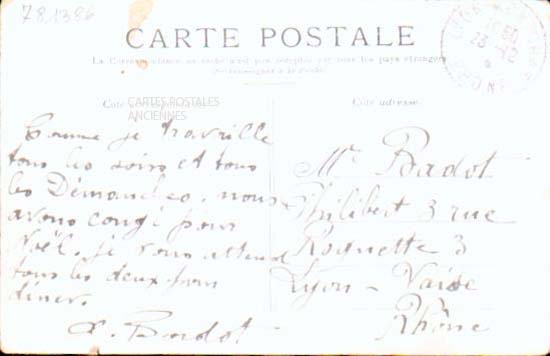 781386
CARTE POSTALE
La Correspondance au recto n'est pas acceptée par tous les pays étrangers
(Se renseigner à la Poste)
Côté adresse.
CARTES POSTALES
ANCIENNES
Comme je travaille
tous les soirs et tous
les Démanches, nous
avons congé pour
Noël. je vous attend
tous les deux pour
diner.
Badot
Mr Badot
Philibert 3 rue
Roquette 3
Lyon - Vaise
Rhône